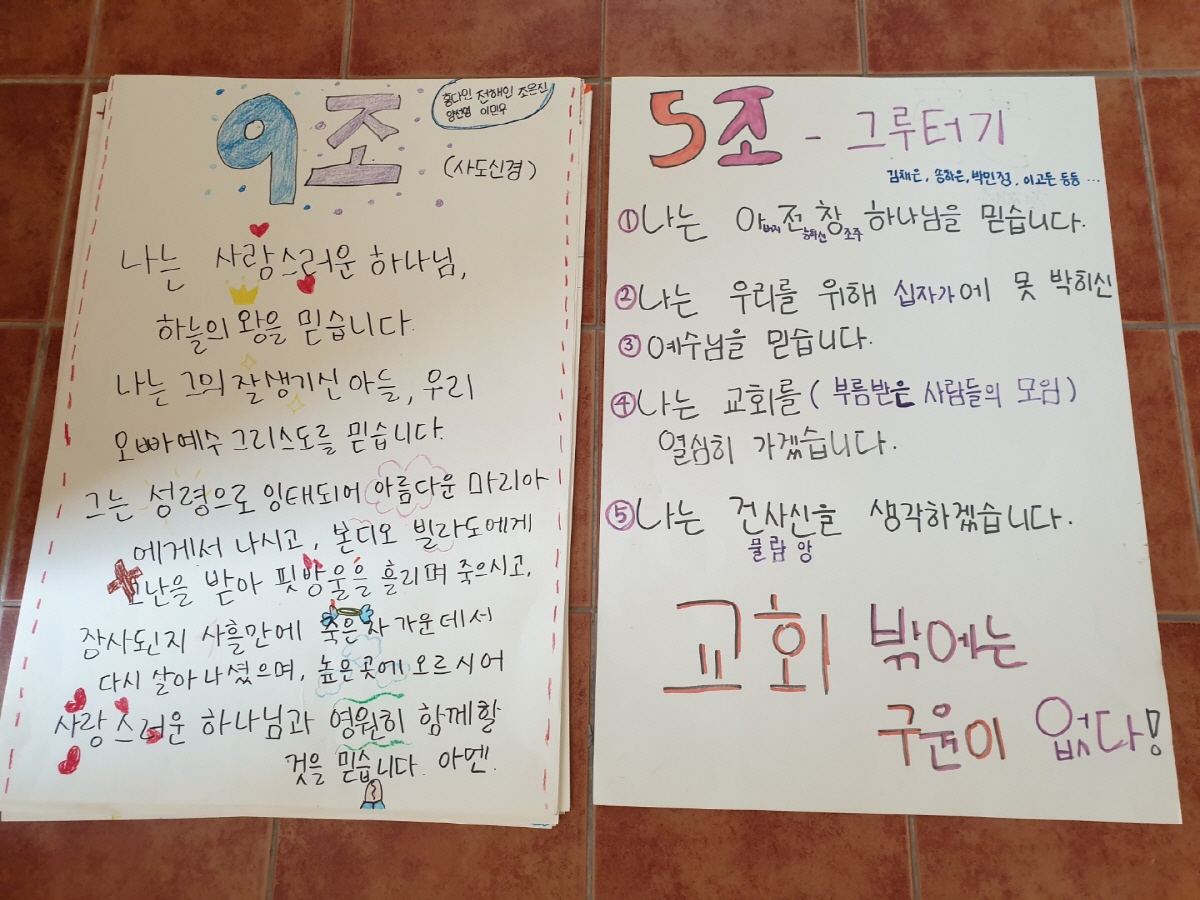 9조
홍다인 전해인 조은진
양선영 이민우
(사도신경)
나는 사랑스러운 하나님,
하늘의 왕을 믿습니다.
나는 그의 잘생기신 아들, 우리
오빠예수 그리스도를 믿습니다.
그는 성령으로 잉태되어 아름다운 마리아
에게서 나시고, 본디오 빌라도에게
고난을 받아 핏방울을 흘리며 죽으시고,
장사된지 사흘만에 죽은 자 가운데서
다시 살아나셨으며, 높은곳에 오르시어
사랑스러운 하나님과 영원히 함께할
것을 믿습니다. 아멘.
5조 - 그루터기
김채은, 송하은, 박민정, 이고든 등등 ...
① 나는 아버지 전능하신 창조주 하나님을 믿습니다.
② 나는 우리를 위해 십자가에 못 박히신
③ 예수님을 믿습니다.
④ 나는 교회를 (부름받은 사람들의 모임)
열심히 가겠습니다.
⑤ 나는 건사신을 생각하겠습니다.
물람앙
교회 밖에는
구원이 없다!